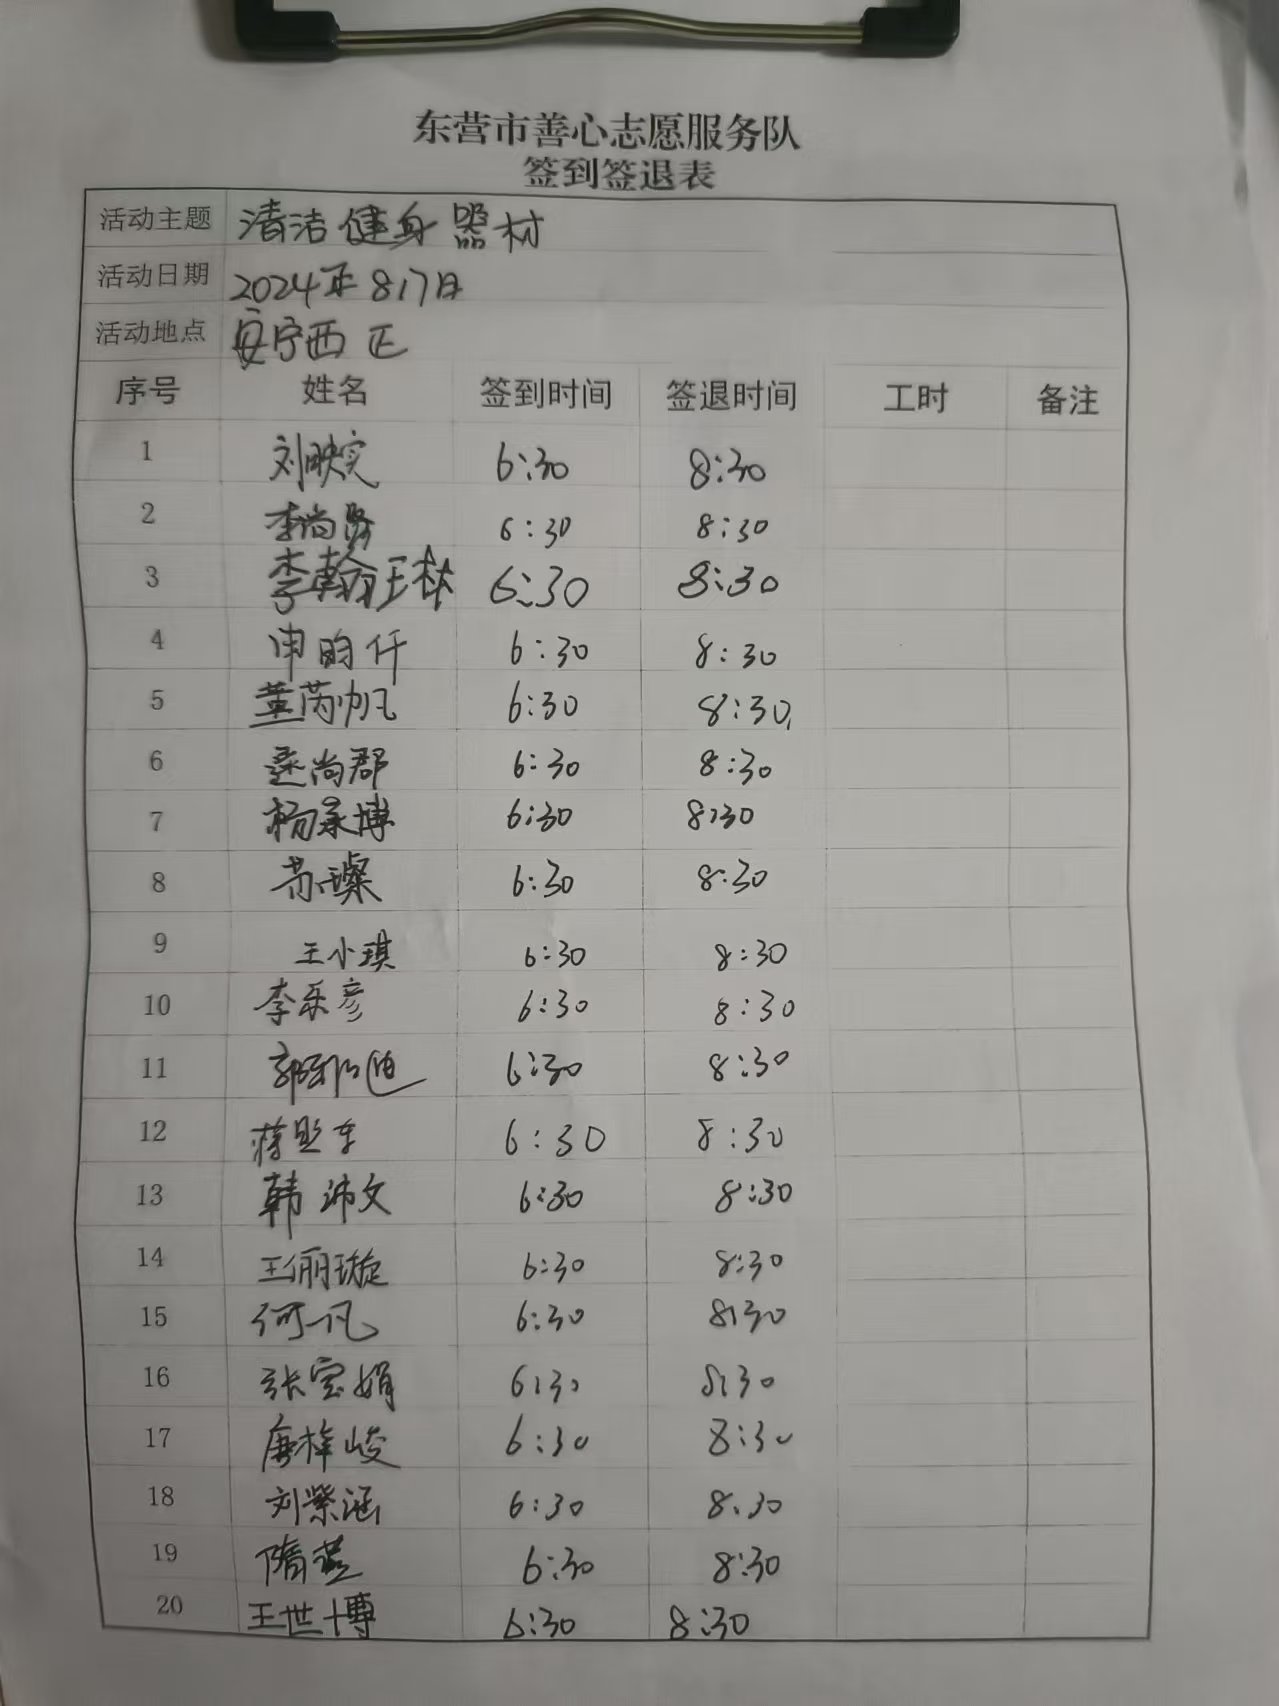 东营市善心志愿服务队
签到签退表
活动主题 清洁健身器材
活动日期 2024年817日
活动地点 安宁西区
序号 姓名 签到时间 签退时间 工时 备注
1 刘映实 6:30 8:30
2 李尚贤 6:30 8:30
3 李翰玉林 6:30 8:30
4 申昀仟 6:30 8:30
5 董芮帆 6:30 8:30
6 逯尚郡 6:30 8:30
7 杨承博 6:30 8:30
8 苏璨 6:30 8:30
9 王小琪 6:30 8:30
10 李乐彦 6:30 8:30
11 郭 6:30 8:30
12 蒋 东 6:30 8:30
13 韩沛文 6:30 8:30
14 王俪璇 6:30 8:30
15 何一凡 6:30 8:30
16 张宝娟 6:30 8:30
17 唐梓峻 6:30 8:30
18 刘紫涵 6:30 8:30
19 隋 6:30 8:30
20 王世博 6:30 8:30